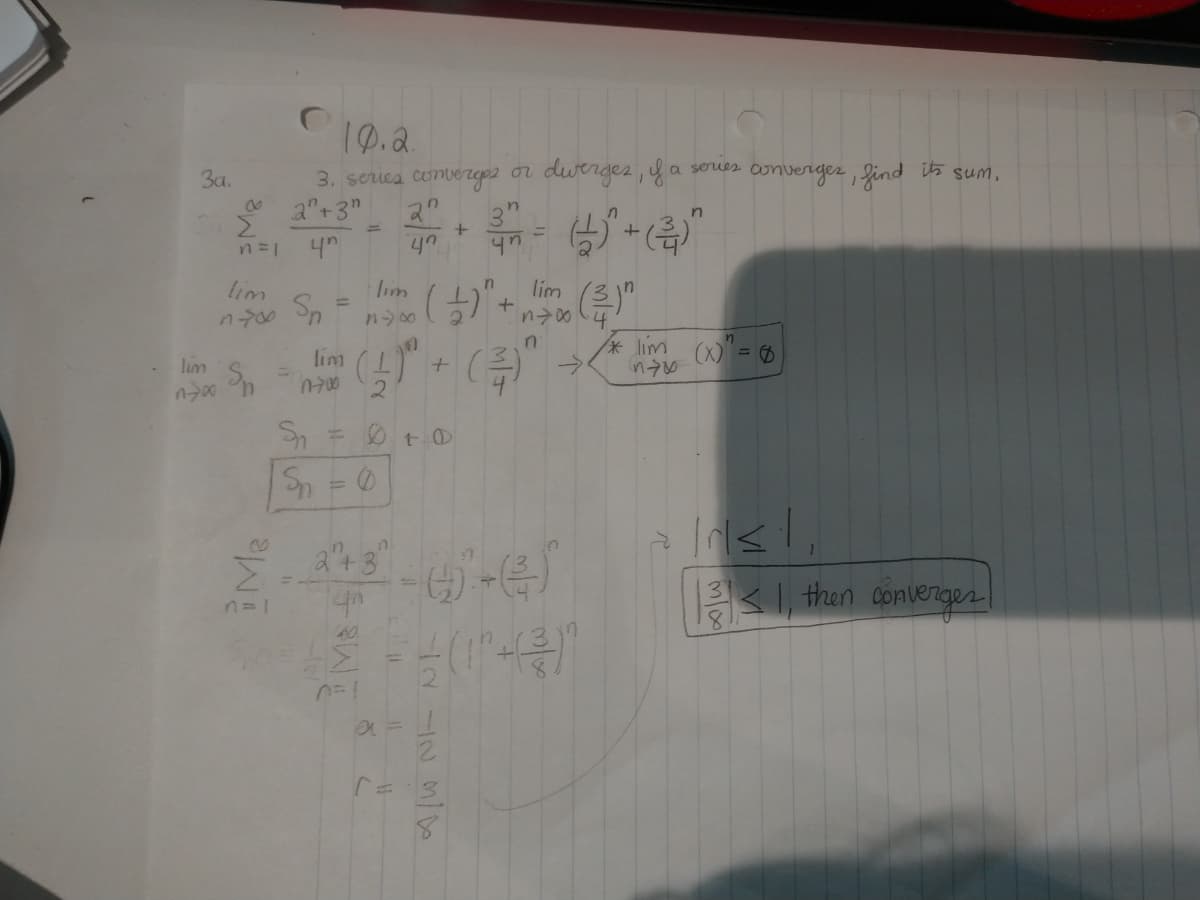 10.2
3a. 3. series converges or diverges, if a series converges, find its sum.
∞ Σ n=1 2ⁿ+3ⁿ/4ⁿ = 2ⁿ/4ⁿ + 3ⁿ/4ⁿ = (1/2)ⁿ + (3/4)ⁿ
lim n→∞ Sn = lim n→∞ (1/2)ⁿ + lim n→∞ (3/4)ⁿ
lim n→∞ Sn = lim n→∞ (1/2)ⁿ + (3/4)ⁿ → * lim n→∞ (x)ⁿ = 0
Sn = 0 + 0
Sn = 0
∞ Σ n=1 = 2ⁿ+3ⁿ/4ⁿ = (1/2)ⁿ + (3/4)ⁿ
∞ Σ n=1 = 1/2 (1ⁿ + (3/8)ⁿ
a = 1/2
r = 3/8
→ |r| ≤ 1,
|3/8| ≤ 1, then converges